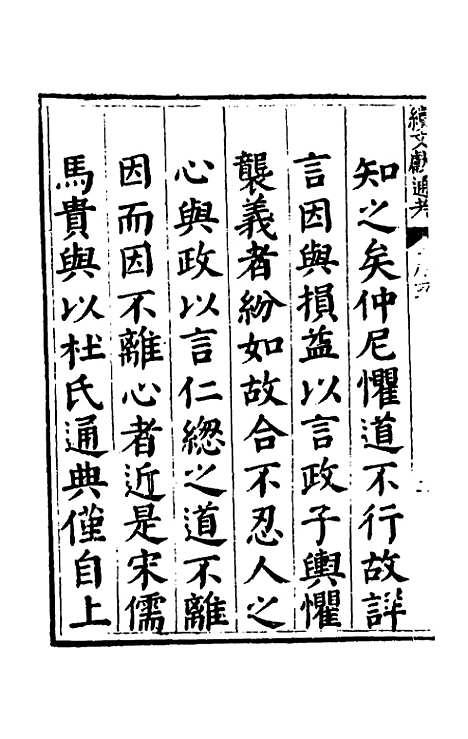 續文獻通考
知之矣仲尼懼道不行故詳
言因與損益以言政子輿懼
襲義者紛如故合不忍人之
心與政以言仁緫之道不離
因而因不離心者近是宋儒
馬貴與以杜氏通典僅自上